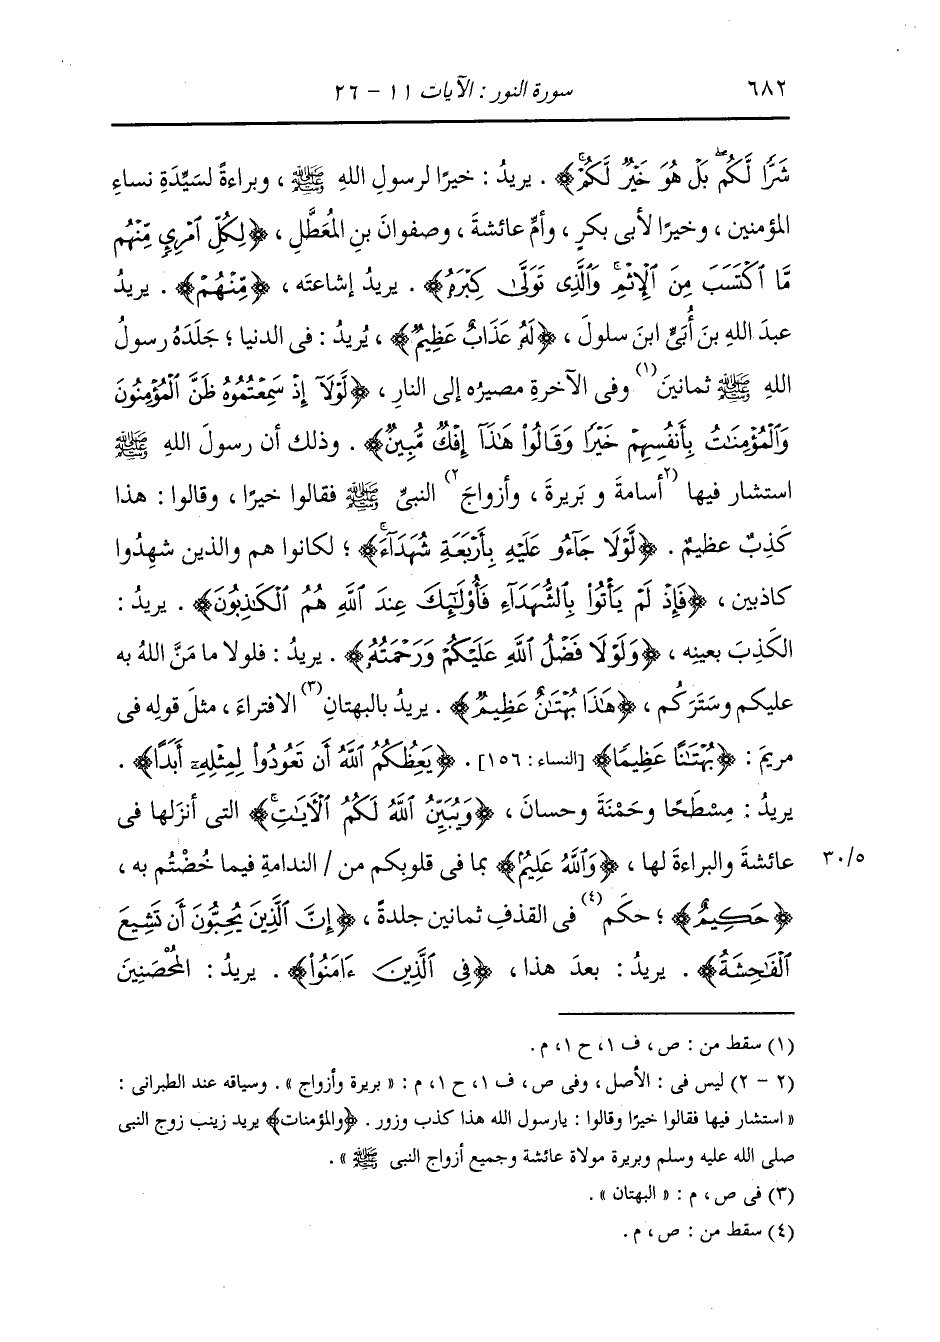 ٦٨٢
سورة النور : الآيات ١١ - ٢٦
شَرًّا لَّكُمۖ بَلْ هُوَ خَيْرٌ لَّكُمْۚ﴾ . يريدُ : خيرًا لرسولِ اللهِ ﷺ ، وبراءةً لسَيِّدَةِ نساءِ
المؤمنين ، وخيرًا لأبى بكرٍ ، وأمِّ عائشةَ ، وصفوانَ بنِ المُعَطَّلِ ، ﴿لِكُلِّ ٱمْرِىٍٕ مِّنْهُم
مَّا ٱكْتَسَبَ مِنَ ٱلْإِثْمِۚ وَٱلَّذِى تَوَلَّىٰ كِبْرَهُۥ﴾ . يريدُ إشاعتَه ، ﴿مِنْهُمْ﴾ . يريدُ
عبدَ اللهِ بنَ أُبَىٍّ ابنَ سلولَ ، ﴿لَهُۥ عَذَابٌ عَظِيمٌ﴾ ، يُريدُ : فى الدنيا ؛ جلَدَهُ رسولُ
اللهِ ﷺ ثمانينَ(١) وفى الآخرةِ مصيرُه إلى النارِ ، ﴿لَّوْلَآ إِذْ سَمِعْتُمُوهُ ظَنَّ ٱلْمُؤْمِنُونَ
وَٱلْمُؤْمِنَٰتُ بِأَنفُسِهِمْ خَيْرًا وَقَالُوا۟ هَٰذَآ إِفْكٌ مُّبِينٌ﴾ . وذلك أن رسولَ اللهِ ﷺ
استشار فيها (٢أسامةَ و بَريرةَ ، وأزواجَ٢) النبىِّ ﷺ فقالوا خيرًا ، وقالوا : هذا
كَذِبٌ عظيمٌ . ﴿لَّوْلَا جَآءُو عَلَيْهِ بِأَرْبَعَةِ شُهَدَآءَۚ﴾ ؛ لكانوا هم والذين شهِدُوا
كاذبين ، ﴿فَإِذْ لَمْ يَأْتُوا۟ بِٱلشُّهَدَآءِ فَأُو۟لَٰٓئِكَ عِندَ ٱللَّهِ هُمُ ٱلْكَٰذِبُونَ﴾ . يريدُ :
الكَذِبَ بعينِه ، ﴿وَلَوْلَا فَضْلُ ٱللَّهِ عَلَيْكُمْ وَرَحْمَتُهُۥ﴾ . يريدُ : فلولا ما مَنَّ اللهُ به
عليكم وسَتَرَكُم ، ﴿هَٰذَا بُهْتَٰنٌ عَظِيمٌ﴾ . يريدُ بالبهتانِ(٣) الافتراءَ ، مثلَ قولِه فى
مريمَ : ﴿بُهْتَٰنًا عَظِيمًا﴾ [النساء : ١٥٦] . ﴿يَعِظُكُمُ ٱللَّهُ أَن تَعُودُوا۟ لِمِثْلِهِۦٓ أَبَدًا﴾ .
يريدُ : مِسْطَحًا وحَمْنَةَ وحسانَ ، ﴿وَيُبَيِّنُ ٱللَّهُ لَكُمُ ٱلْءَايَٰتِۚ﴾ التى أنزَلها فى
عائشةَ والبراءةَ لها ، ﴿وَٱللَّهُ عَلِيمٌ﴾ بما فى قلوبِكم من / الندامةِ فيما خُضْتُم به ، ٣٠/٥
﴿حَكِيمٌ﴾ ؛ حكَم(٤) فى القذفِ ثمانين جلدةً ، ﴿إِنَّ ٱلَّذِينَ يُحِبُّونَ أَن تَشِيعَ
ٱلْفَٰحِشَةُ﴾ . يريدُ : بعدَ هذا ، ﴿فِى ٱلَّذِينَ ءَامَنُوا۟﴾ . يريدُ : المُحْصَنِينَ
(١) سقط من : ص ، ف ١، ح ١، م .
(٢ - ٢) ليس فى : الأصل ، وفى ص ، ف ١، ح ١، م : « بريرة وأزواج » . وسياقه عند الطبرانى :
« استشار فيها فقالوا خيرًا وقالوا : يارسول الله هذا كذب وزور . ﴿والمؤمنات﴾ يريد زينب زوج النبى
صلى الله عليه وسلم وبريرة مولاة عائشة وجميع أزواج النبى ﷺ » .
(٣) فى ص ، م : « البهتان » .
(٤) سقط من : ص ، م .